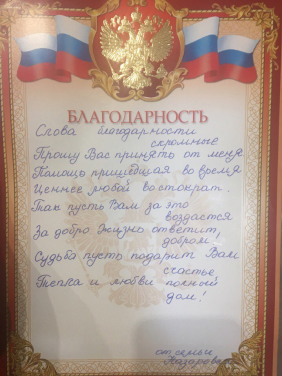 БЛАГОДАРНОСТЬ
Слова благодарности
скромные
Прошу Вас принять от меня
Помощь пришедшая во время
Ценнее любой во стократ.
Так пусть Вам за это
воздастся
За добро жизнь ответит,
добром,
Судьба пусть подарит Вам
счастье
Тепла и любви полный
дом!
от семьи